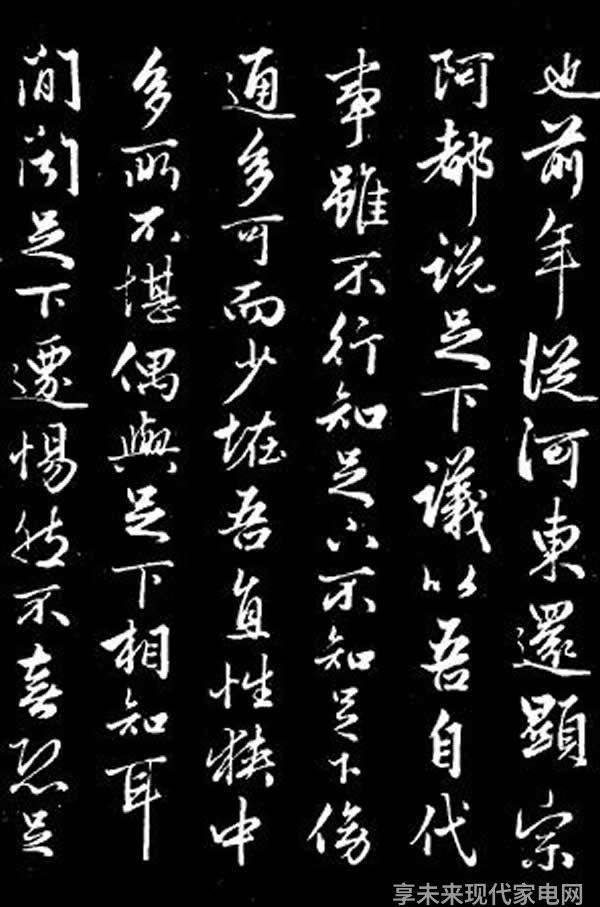 也前年從河東還顯宗
阿都說足下議以吾自代
事雖不行知足下不知足下傍
通多可而少恠吾直性狹中
多所不堪偶與足下相知耳
閒聞足下遷惕然不喜恐足
享未来现代家电网